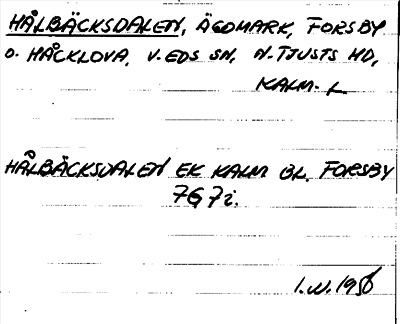 HÅLBÄCKSDALEN, ÄGOMARK, FORSBY
O. HÅCKLOVA, V. EDS SN, N. TJUSTS HD,
KALM. L
HÅLBÄCKSDALEN EK KALM BL. FORSBY
7G7i.